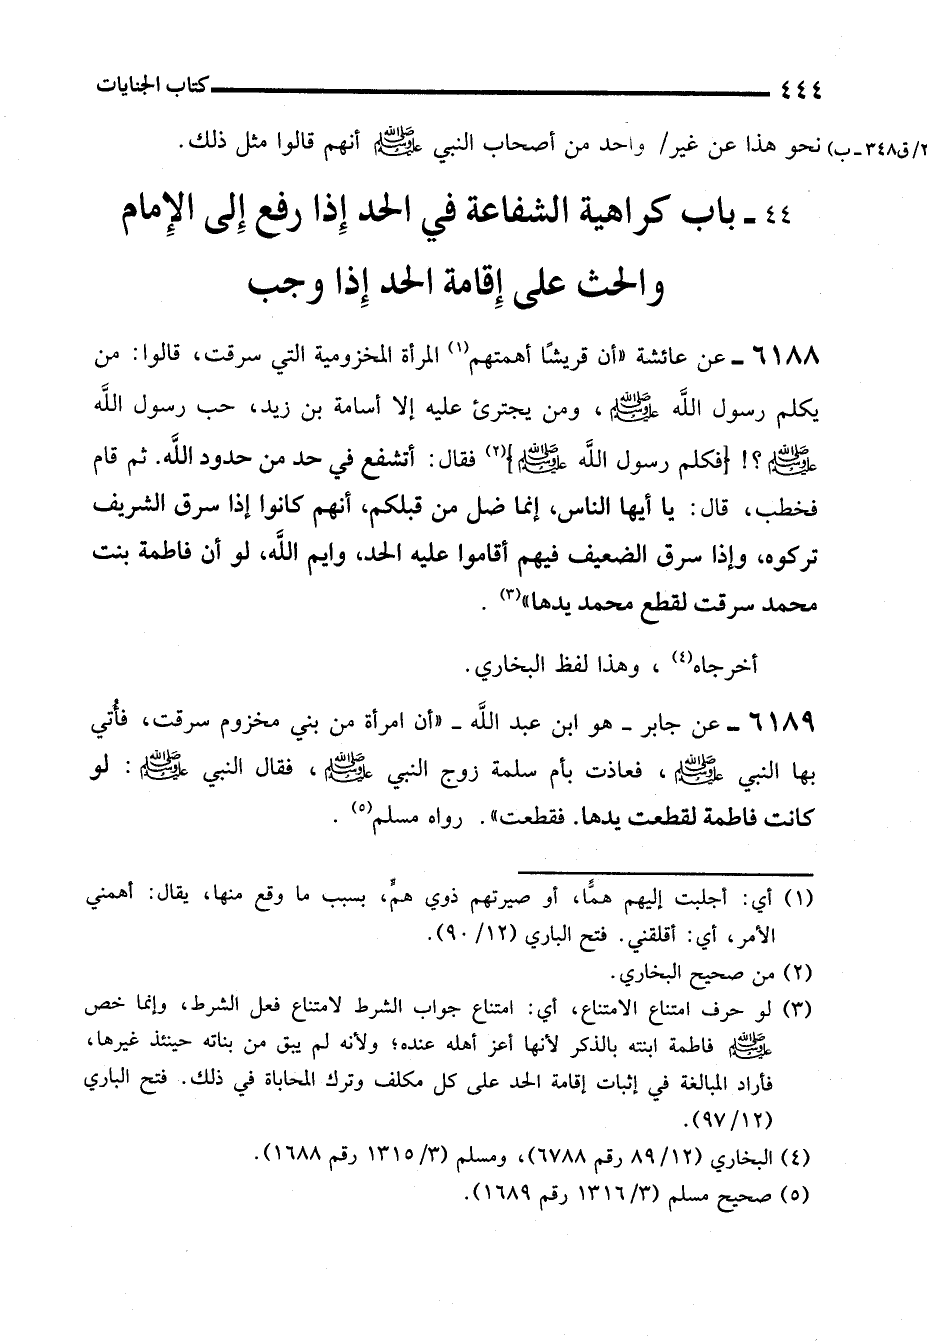 ٤٤٤ كتاب الجنايات
٢/ق٣٤٨-ب) نحو هذا عن غير/ واحد من أصحاب النبي ﷺ أنهم قالوا مثل ذلك.
٤٤ - باب كراهية الشفاعة في الحد إذا رفع إلى الإمام
والحث على إقامة الحد إذا وجب
٦١٨٨ - عن عائشة «أن قريشًا أهمتهم(١) المرأة المخزومية التي سرقت، قالوا: من
يكلم رسول اللَّه ﷺ، ومن يجترئ عليه إلا أسامة بن زيد، حب رسول اللَّه
ﷺ؟! {فكلم رسول اللَّه ﷺ}(٢) فقال: أتشفع في حد من حدود اللَّه. ثم قام
فخطب، قال: يا أيها الناس، إنما ضل من قبلكم، أنهم كانوا إذا سرق الشريف
تركوه، وإذا سرق الضعيف فيهم أقاموا عليه الحد، وايم اللَّه، لو أن فاطمة بنت
محمد سرقت لقطع محمد يدها»(٣).
أخرجاه(٤)، وهذا لفظ البخاري.
٦١٨٩ - عن جابر - هو ابن عبد اللَّه - «أن امرأة من بني مخزوم سرقت، فأُتي
بها النبي ﷺ، فعاذت بأم سلمة زوج النبي ﷺ، فقال النبي ﷺ: لو
كانت فاطمة لقطعت يدها. فقطعت». رواه مسلم(٥).
(١) أي: أجلبت إليهم همًّا، أو صيرتهم ذوي همٍّ، بسبب ما وقع منها، يقال: أهمني
الأمر، أي: أقلقني. فتح الباري (١٢/ ٩٠).
(٢) من صحيح البخاري.
(٣) لو حرف امتناع الامتناع، أي: امتناع جواب الشرط لامتناع فعل الشرط، وإنما خص
ﷺ فاطمة ابنته بالذكر لأنها أعز أهله عنده؛ ولأنه لم يبق من بناته حينئذ غيرها،
فأراد المبالغة في إثبات إقامة الحد على كل مكلف وترك المحاباة في ذلك. فتح الباري
(١٢/ ٩٧).
(٤) البخاري (١٢/ ٨٩ رقم ٦٧٨٨)، ومسلم (٣/ ١٣١٥ رقم ١٦٨٨).
(٥) صحيح مسلم (٣/ ١٣١٦ رقم ١٦٨٩).